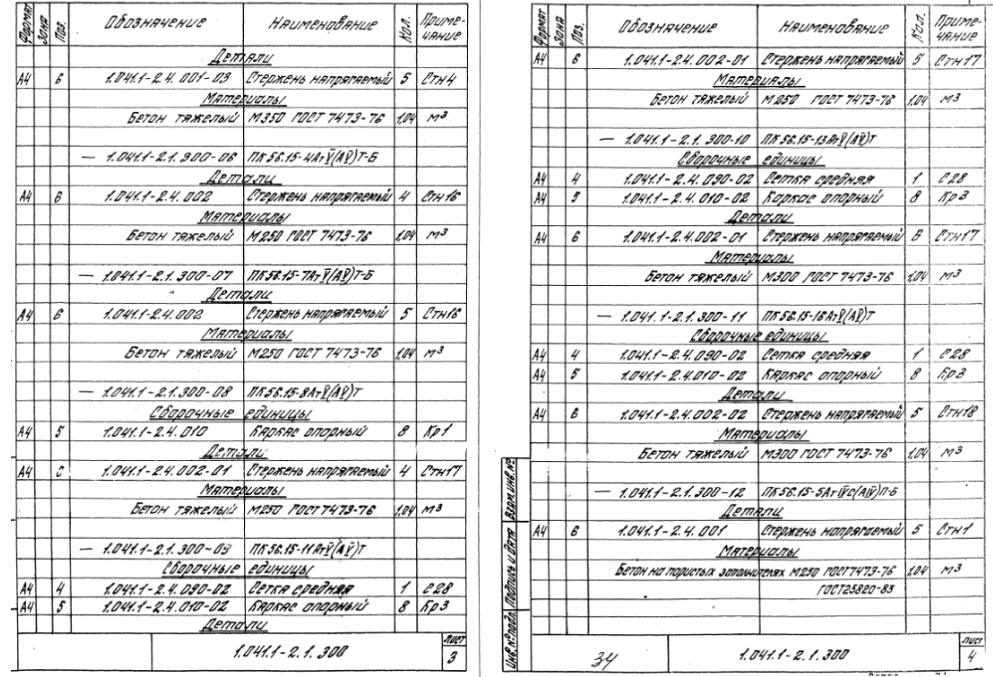 Формат Зона Поз. Обозначение Наименование Кол. Приме-чание
Детали
А4 6 1.041.1-2.4.001-03 Стержень напрягаемый 5 Стн4
Материалы
Бетон тяжелый М350 ГОСТ 7473-76 1,04 м³
— 1.041.1-2.1.300-06 ПК56.15-4АтV(АV)Т-Б
Детали
А4 6 1.041.1-2.4.002 Стержень напрягаемый 4 Стн16
Материалы
Бетон тяжелый М250 ГОСТ 7473-76 1,04 м³
— 1.041.1-2.1.300-07 ПК56.15-7АтV(АV)Т-Б
Детали
А4 6 1.041.1-2.4.002 Стержень напрягаемый 5 Стн16
Материалы
Бетон тяжелый М250 ГОСТ 7473-76 1,04 м³
— 1.041.1-2.1.300-08 ПК56.15-8АтV(АV)Т
Сборочные единицы
А4 5 1.041.1-2.4.010 Каркас опорный 8 Кр1
Детали
А4 1.041.1-2.4.002-01 Стержень напрягаемый 4 Стн17
Материалы
Бетон тяжелый М250 ГОСТ 7473-76 1,04 м³
— 1.041.1-2.1.300-09 ПК56.15-11АтV(АV)Т
Сборочные единицы
А4 4 1.041.1-2.4.090-02 Сетка средняя 1 С28
А4 5 1.041.1-2.4.010-02 Каркас опорный 8 Кр3
Детали
1.041.1-2.1.300
Лист
3
Формат Зона Поз. Обозначение Наименование Кол. Приме-чание
А4 6 1.041.1-2.4.002-01 Стержень напрягаемый 5 Стн17
Материалы
Бетон тяжелый М250 ГОСТ 7473-76 1,04 м³
— 1.041.1-2.1.300-10 ПК56.15-13АтV(АV)Т
Сборочные единицы
А4 4 1.041.1-2.4.090-02 Сетка средняя 1 С28
А4 5 1.041.1-2.4.010-02 Каркас опорный 8 Кр3
Детали
А4 6 1.041.1-2.4.002-01 Стержень напрягаемый 6 Стн17
Материалы
Бетон тяжелый М300 ГОСТ 7473-76 1,04 м³
— 1.041.1-2.1.300-11 ПК56.15-16АтV(АV)Т
Сборочные единицы
А4 4 1.041.1-2.4.090-02 Сетка средняя 1 С28
А4 5 1.041.1-2.4.010-02 Каркас опорный 8 Кр3
Детали
А4 6 1.041.1-2.4.002-02 Стержень напрягаемый 5 Стн18
Материалы
Бетон тяжелый М300 ГОСТ 7473-76 1,04 м³
— 1.041.1-2.1.300-12 ПК56.15-5АтIVС(АIV)П-Б
Детали
А4 6 1.041.1-2.4.001 Стержень напрягаемый 5 Стн1
Материалы
Бетон на пористых заполнителях М250 ГОСТ7473-76 1,04 м³
ГОСТ25820-83
Инв.№подл. Подпись и дата Взам.инв.№
34
1.041.1-2.1.300
Лист
4